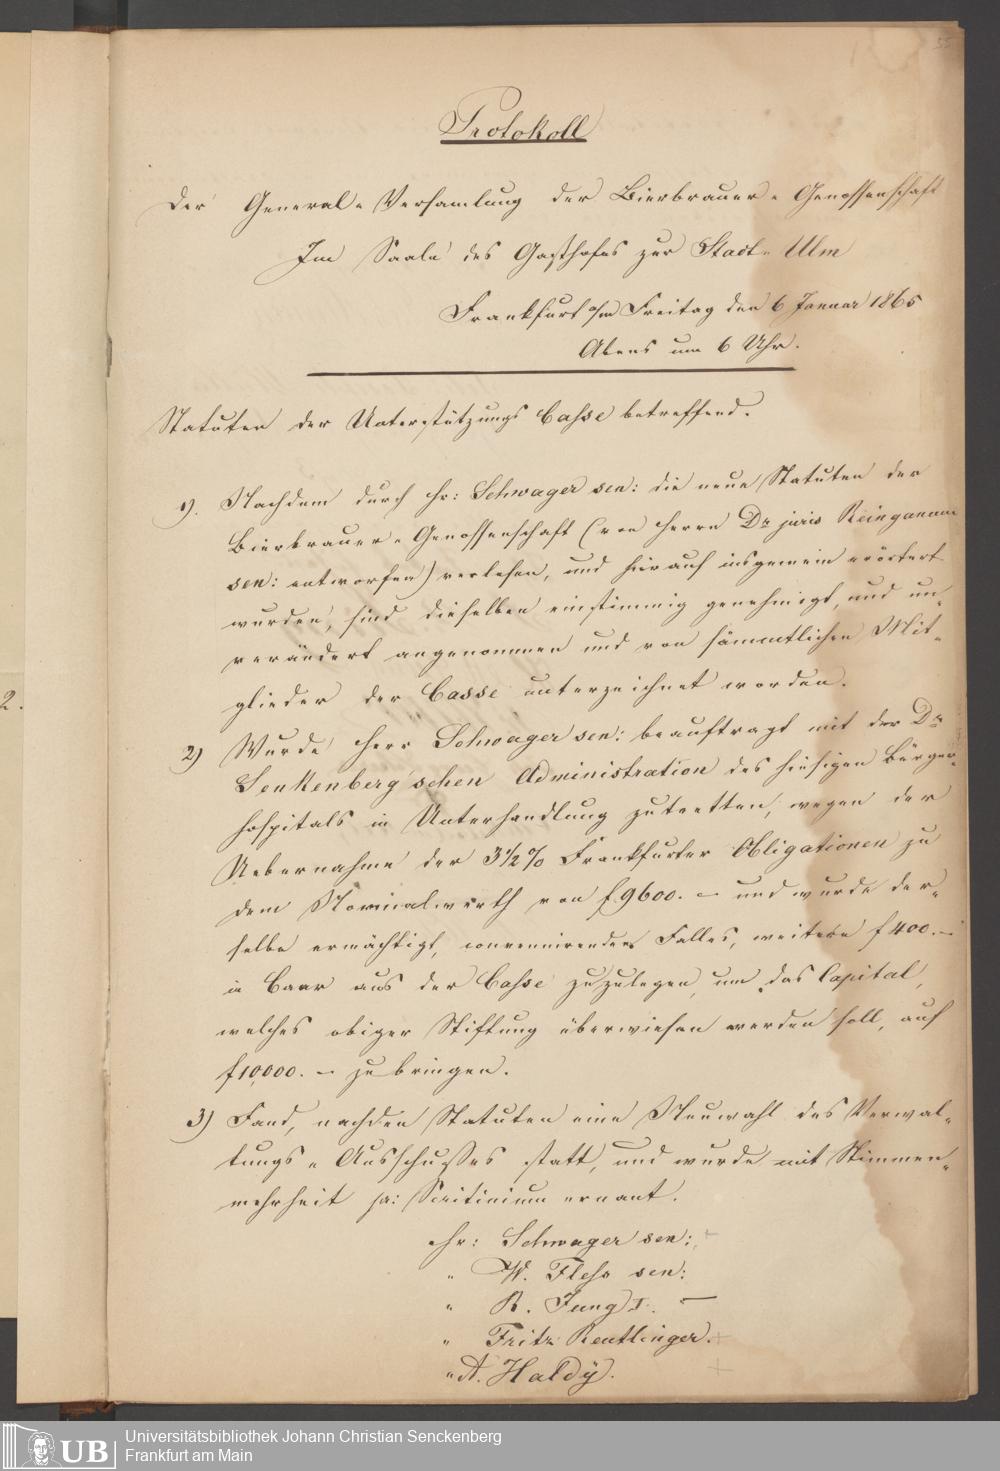 55
Protokoll
Der General-Versamlung der Bierbrauer-Genossenschaft
Im Saale des Gasthofes zur Stadt-Ulm
Frankfurt a/m Freitag den 6 Januar 1865
Abens um 6 Uhr.
Statuten der Unterstützungs Casse betreffend.
1). Nachdem durch Hr: Schwager sen: die neue Statuten der
Bierbrauer-Genossenschaft (von Herrn Dr juris Reinganum
sen: entworfen) verlesen, und hierauf insgemein erörtert
wurden, sind dieselben einstimmig genehmigt, und un-
verändert angenommen und von sämmtlichen Mit-
glieder der Casse unterzeichnet worden.
2) Wurde Herr Schwager sen: beauftragt mit der Dr
Senkenberg'schen Administration des hiesigen Bürger-
hospitals in Unterhandlung zutretten, wegen der
Uebernahme der 3 1/2 % Frankfurter Obligationen zu
dem Nominalwerth von f 9600.– und wurde der-
selbe ermächtigt, convenirenden Falles, weitere f 400.–
in Baar aus der Casse zuzulegen, um das Capital,
welches obiger Stiftung überwiesen werden soll, auf
f 10,000.– zu bringen.
3) Fand, nach den Statuten eine Neuwahl des Verwal-
tungs-Ausschusses statt, und wurde mit Stimmen-
mehrheit pr: Scritinium ernant.
Hr: Schwager sen: +
" W. Flesh sen:
" B. Jung I. –
" Fritz Reutlinger. +
" A. Haldÿ. +
2.
UB
Universitätsbibliothek Johann Christian Senckenberg
Frankfurt am Main